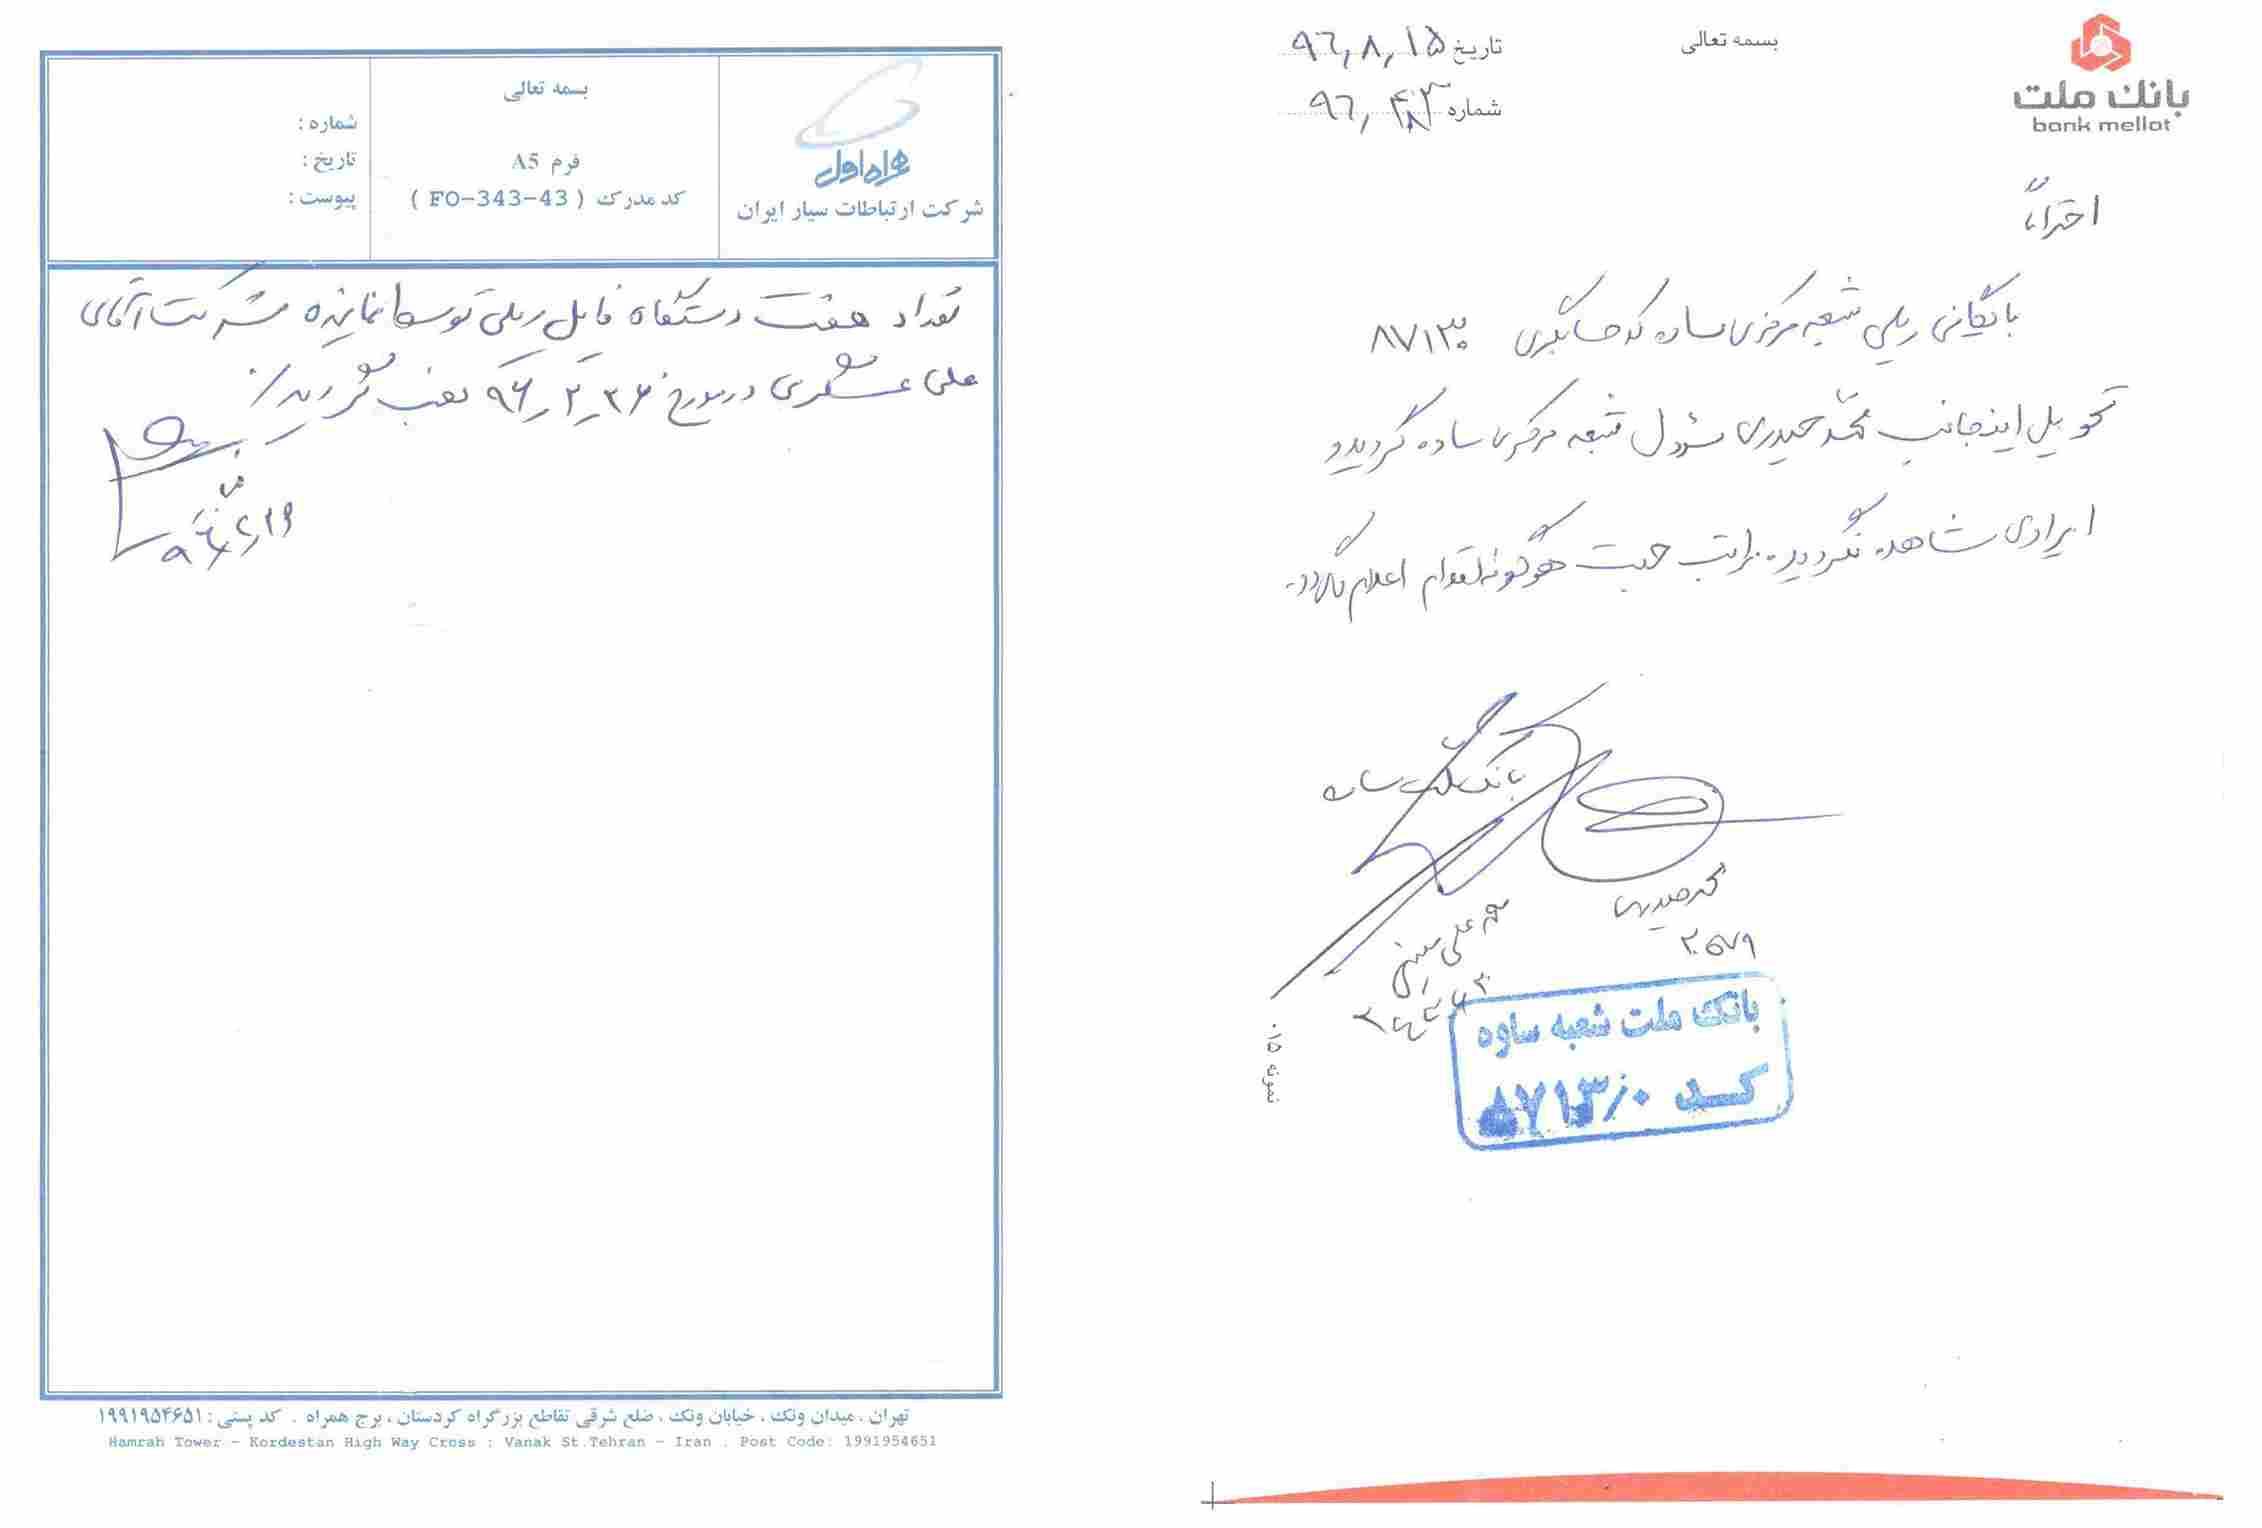 بسمه تعالی
تاریخ ۹۶,۸,۱۵
شماره
بانک ملت
bank mellat
احتراماً
بایگانی ریلی شعبه مرکزی ساوه کد حسابگری ۸۷۱۳۰
تحویل اینجانب محمد حیدری مسئول شعبه مرکزی ساوه گردید و
ایرادی مشاهده نگردید. مراتب جهت هرگونه اقدام اعلام میگردد.
بانک ملت ساوه
محمد حیدری
علی
بانک ملت شعبه ساوه
کد ۸۷۱۳/۰
نمونه ۰۱۵
همراه اول
شرکت ارتباطات سیار ایران
بسمه تعالی
فرم A5
کد مدرک ( FO-343-43 )
شماره :
تاریخ :
پیوست :
تعداد هفت دستگاه فایل ریلی توسط نماینده شرکت آقای
علی عسگری در مورخ ۹۶,۲,۲۶ نصب گردید.
تهران ، میدان ونک ، خیابان ونک ، ضلع شرقی تقاطع بزرگراه کردستان ، برج همراه . کد پستی : ۱۹۹۱۹۵۴۶۵۱
Hamrah Tower - Kordestan High Way Cross : Vanak St.Tehran - Iran . Post Code: 1991954651